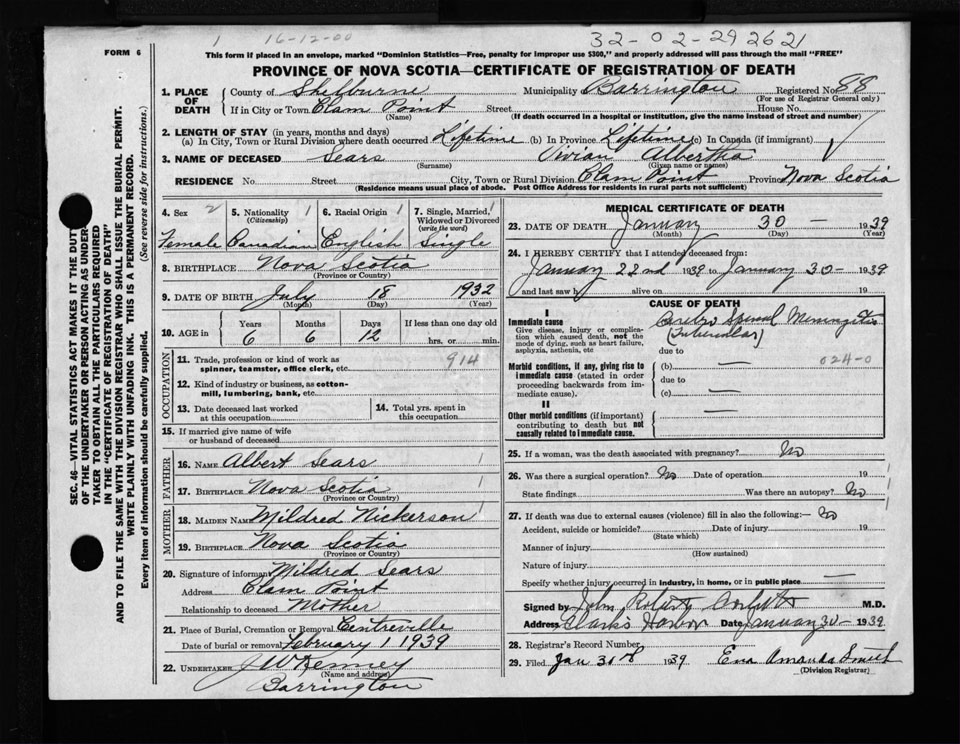 1 16-12-00 32-02-29 2621
FORM 6
This form if placed in an envelope, marked "Dominion Statistics—Free, penalty for improper use $300," and properly addressed will pass through the mail "FREE"
PROVINCE OF NOVA SCOTIA—CERTIFICATE OF REGISTRATION OF DEATH
SEC. 46—VITAL STATISTICS ACT MAKES IT THE DUTY
OF THE UNDERTAKER OR PERSON ACTING AS UNDER-
TAKER TO OBTAIN ALL THE PARTICULARS REQUIRED
IN THE "CERTIFICATE OF REGISTRATION OF DEATH"
AND TO FILE THE SAME WITH THE DIVISION REGISTRAR WHO SHALL ISSUE THE BURIAL PERMIT.
WRITE PLAINLY WITH UNFADING INK. THIS IS A PERMANENT RECORD.
Every item of information should be carefully supplied. (See reverse side for instructions.)
1. PLACE OF DEATH County of Shelburne Municipality Barrington Registered No. 88
(For use of Registrar General only)
If in City or Town Clam Point Street House No.
(Name) (If death occurred in a hospital or institution, give the name instead of street and number)
2. LENGTH OF STAY (in years, months and days)
(a) In City, Town or Rural Division where death occurred Lifetime (b) In Province Lifetime (c) In Canada (if immigrant)
3. NAME OF DECEASED Sears Vivian Albertha
(Surname) (Given name or names)
RESIDENCE No. Street City, Town or Rural Division Clam Point Province Nova Scotia
(Residence means usual place of abode. Post Office Address for residents in rural parts not sufficient)
4. Sex 2 5. Nationality 1 6. Racial Origin 1 7. Single, Married, 1
(Citizenship) Widowed or Divorced
(write the word)
Female Canadian English Single
8. BIRTHPLACE Nova Scotia
(Province or Country)
9. DATE OF BIRTH July 18 1932
(Month) (Day) (Year)
10. AGE in Years Months Days If less than one day old
6 6 12 hrs. or min.
OCCUPATION
11. Trade, profession or kind of work as 914
spinner, teamster, office clerk, etc.
12. Kind of industry or business, as cotton-
mill, lumbering, bank, etc.
13. Date deceased last worked at this occupation 14. Total yrs. spent in this occupation
15. If married give name of wife
or husband of deceased
FATHER
16. NAME Albert Sears 1
17. BIRTHPLACE Nova Scotia 1
(Province or Country)
MOTHER
18. MAIDEN NAME Mildred Nickerson 1
19. BIRTHPLACE Nova Scotia
(Province or Country)
20. Signature of informant Mildred Sears
Address Clam Point
Relationship to deceased Mother
21. Place of Burial, Cremation or Removal Centreville
Date of burial or removal February 1 1939
22. UNDERTAKER J W Kenney
(Name and address)
Barrington
MEDICAL CERTIFICATE OF DEATH
23. DATE OF DEATH January 30 — 1939
(Month) (Day) (Year)
24. I HEREBY CERTIFY that I attended deceased from:
January 22nd 1939 to January 30 — 1939
and last saw h alive on 19
CAUSE OF DEATH
I
Immediate cause Cerebro Spinal Meningitis
Give disease, injury or complica- (Tubercular)
tion which caused death, not the
mode of dying, such as heart failure,
asphyxia, asthenia, etc due to
Morbid conditions, if any, giving rise to (b) — 024-0
immediate cause (stated in order due to
proceeding backwards from im-
mediate cause). (c)
II
Other morbid conditions (if important) —
contributing to death but not
causally related to immediate cause.
25. If a woman, was the death associated with pregnancy? No
26. Was there a surgical operation? No Date of operation 19 1
State findings Was there an autopsy? No 1
27. If death was due to external causes (violence) fill in also the following:— No
Accident, suicide or homicide? Date of injury 19
(State which)
Manner of injury
(How sustained)
Nature of injury
Specify whether injury occurred in industry, in home, or in public place —
Signed by John Robert M.D.
Address Clarks Harbor Date January 30 — 1939
28. Registrar's Record Number
29. Filed Jan 31st 1939 Ena Amanda Smith
(Division Registrar)